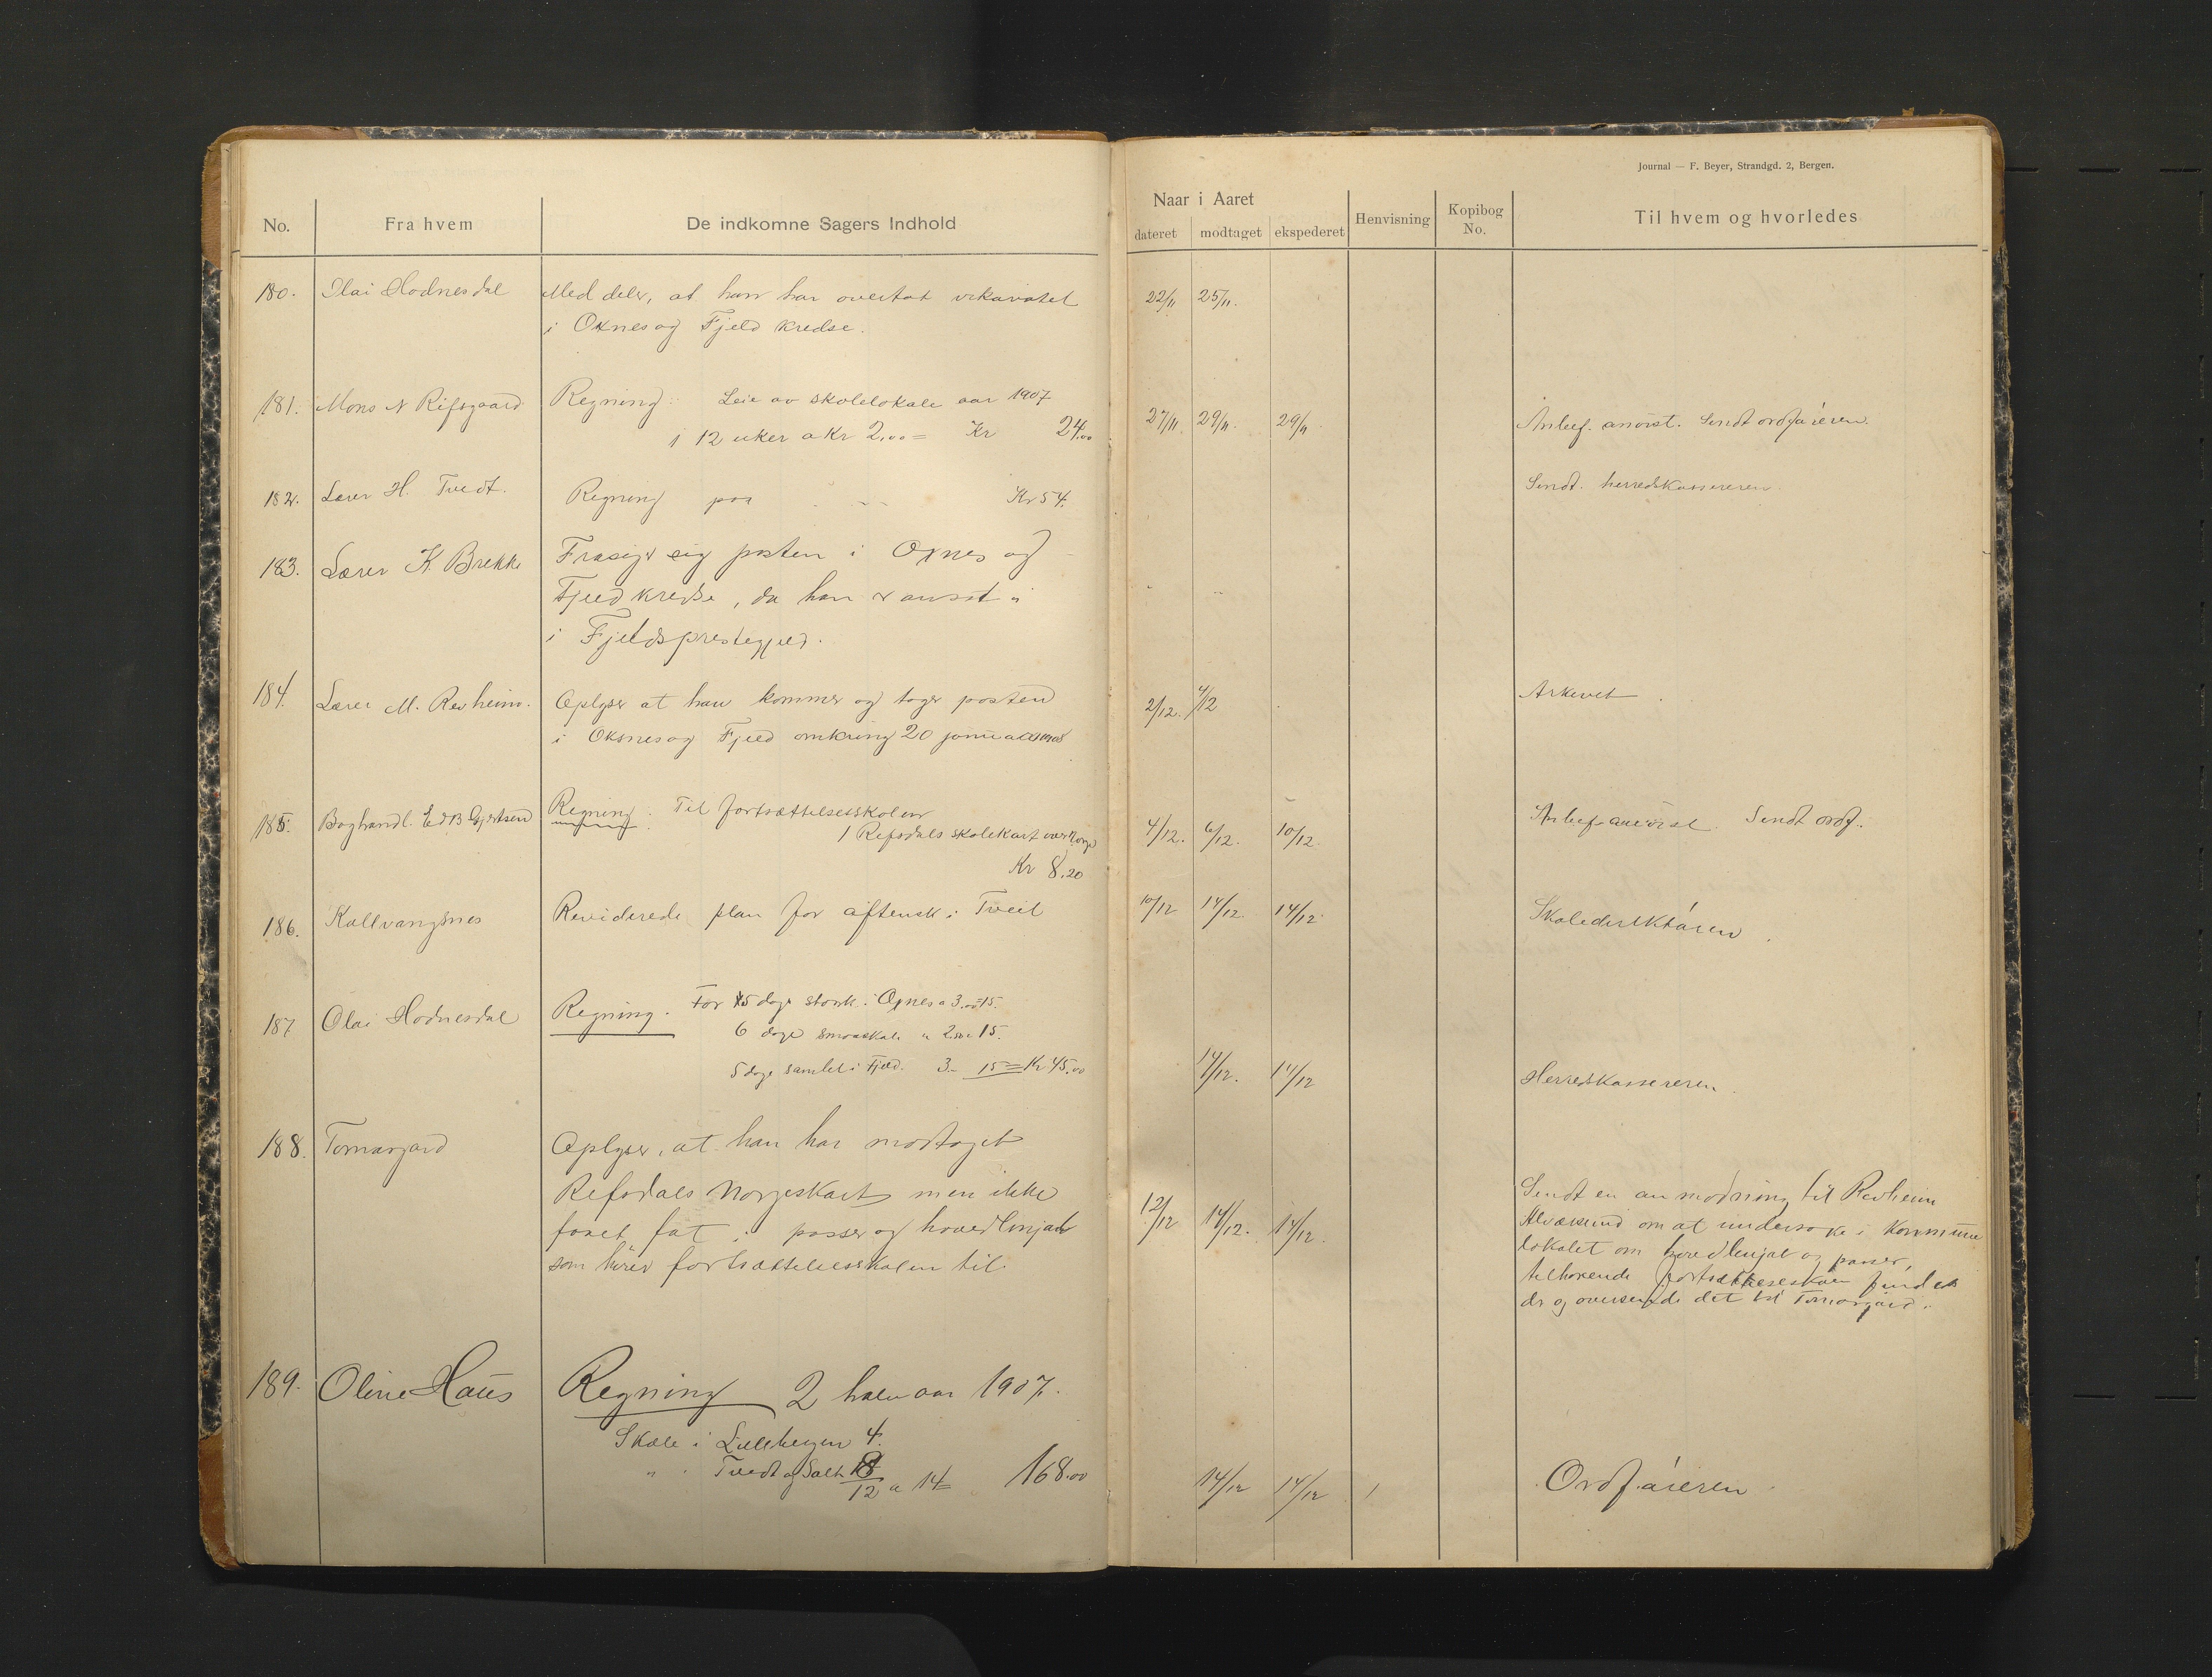 Journal — F. Beyer, Strandgd. 2, Bergen.
No. Fra hvem De indkomne Sagers Indhold
Naar i Aaret
dateret modtaget ekspederet Henvisning Kopibog No. Til hvem og hvorledes
180. Olai Hodnesdal Meddeler, at han har overtat vikariatet 22/11 25/11.
i Oxnes og Fjeld kredse.
181. Mons N Rifsgaard Regning: Leie av skolelokale aar 1907
i 12 uker a Kr 2,00 = Kr 24,00 27/11. 29/11. 29/11. Anbef. anvist. Sendt ordføreren.
182. Lærer H. Tvedt. Regning paa Kr 54. Sendt herredskassereren.
183. Lærer K. Brekke Frasiger sig posten i Oxnes og
Fjeld kredse, da han er ansat i
i Fjelds prestegjeld.
184. Lærer M. Revheim. Oplyser at han kommer og tager posten 2/12. 4/12 Arkivet
i Oksnes og Fjeld omkring 20 januar 1908
185. Boghandl. Ed B Gjertsen Regning. Til fortsættelsesskolen
1 Refsdals skolekart over Norge 4/12. 6/12. 10/12 Anbef. anvist. Sendt ordf.
Kr 8,20
186. Kallvangsnes Reviderede plan for aftensk. i Tveit 10/12 14/12. 14/12. Skoledirektøren.
187 Olai Hodnesdal Regning. For 5 dage stork. i Oxnes a 3.00 = 15.
6 dage smaaskole a 2.50 = 15.
5 dage samlet i Fjeld. 3.- 15 = Kr 45.00 14/12. 14/12 Herredskassereren.
188. Tornargard Oplyser, at han har modtaget
Refsdals Norgeskart men ikke
faaet fat i passer og hovedlinjal
som hører fortsættelsesskolen til.
12/12 14/12. 14/12.
Sendt en anmodning til Revheim
Alværsund om at undersøke i Kommune
lokalet om hovedlinjal og passer,
tilhørende fortsættelsesskolen findes
der og oversende det til Tornargard.
189. Oline Haus Regning 2 halvaar 1907.
Skole i Lillebergen 4.
" " Tvedt og Salt 8
12 a 14 = 168.00 14/12 14/12 Ordføreren.